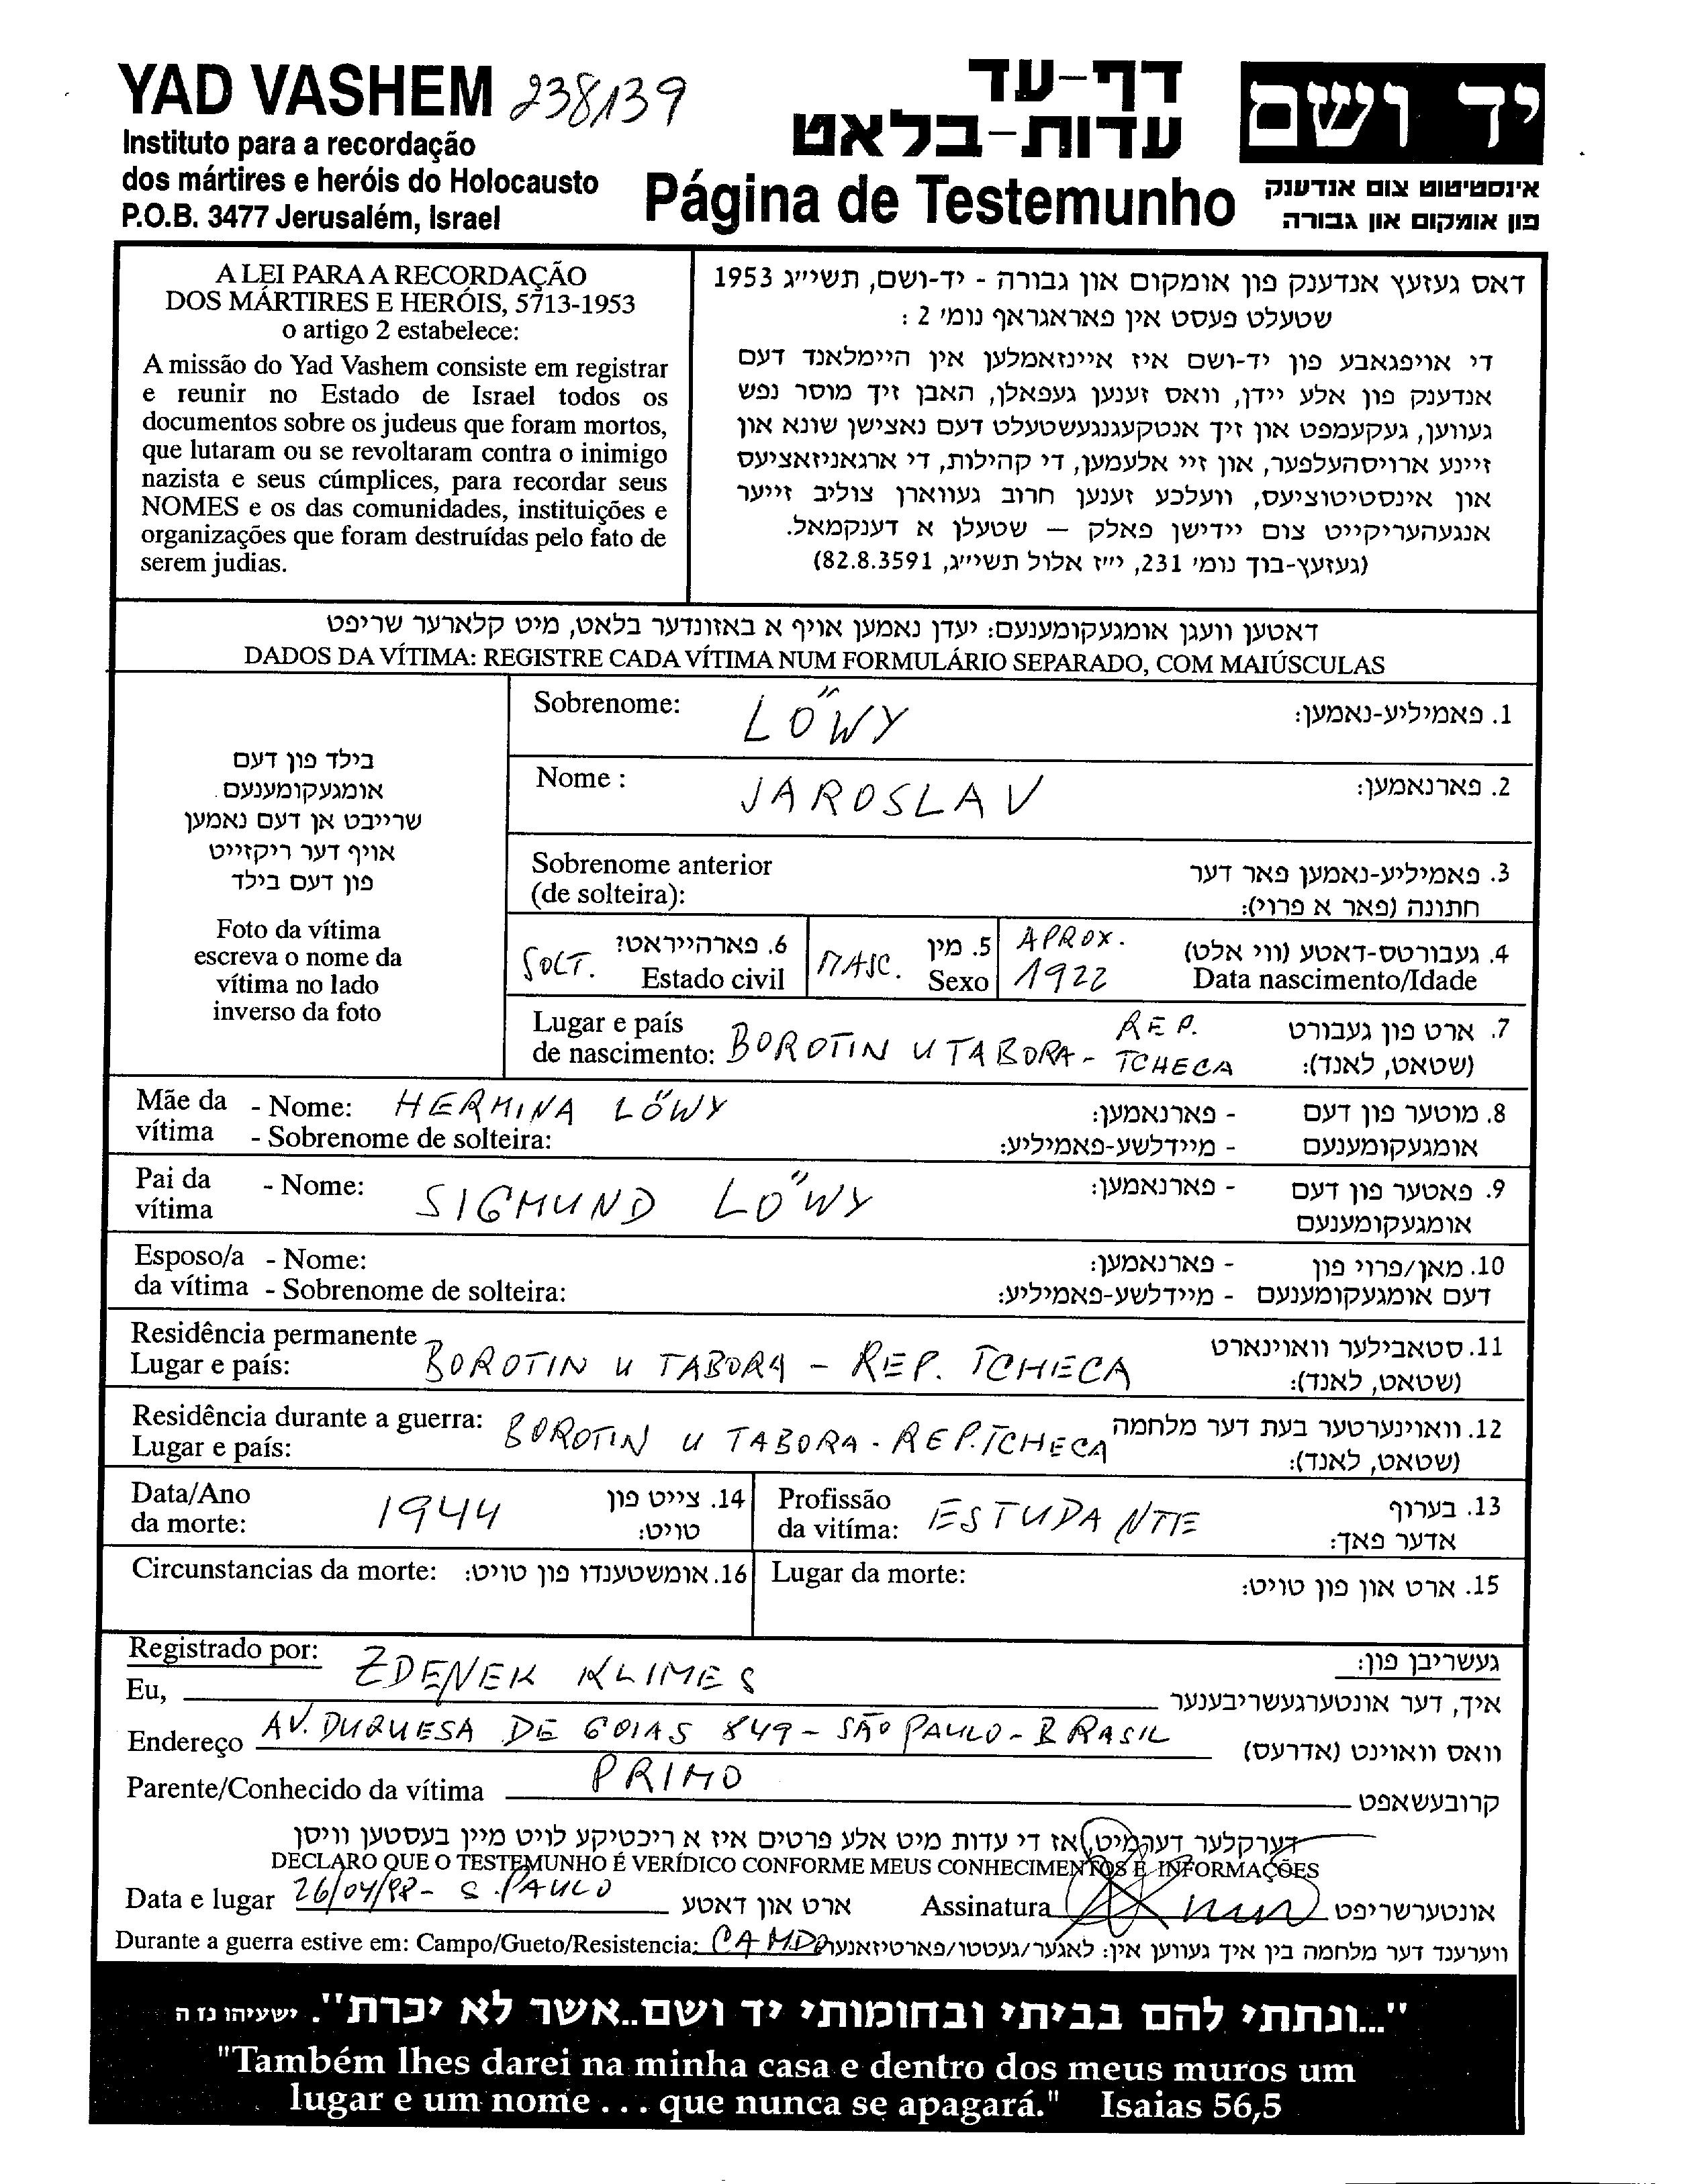 YAD VASHEM 238139
Instituto para a recordação
dos mártires e heróis do Holocausto
P.O.B. 3477 Jerusalém, Israel
דף-עד
עדות-בלאט
Página de Testemunho
יד ושם
אינסטיטוט צום אנדענק
פון אומקום און גבורה
A LEI PARA A RECORDAÇÃO
DOS MÁRTIRES E HERÓIS, 5713-1953
o artigo 2 estabelece:
A missão do Yad Vashem consiste em registrar
e reunir no Estado de Israel todos os
documentos sobre os judeus que foram mortos,
que lutaram ou se revoltaram contra o inimigo
nazista e seus cúmplices, para recordar seus
NOMES e os das comunidades, instituições e
organizações que foram destruídas pelo fato de
serem judias.
דאס געזעץ אנדענק פון אומקום און גבורה - יד-ושם, תשי״ג 1953
שטעלט פעסט אין פאראגראף נומ׳ 2 :
די אויפגאבע פון יד-ושם איז איינזאמלען אין היימלאנד דעם
אנדענק פון אלע יידן, וואס זענען געפאלן, האבן זיך מוסר נפש
געווען, געקעמפט און זיך אנטקעגנגעשטעלט דעם נאצישן שונא און
זיינע ארויסהעלפער, און זיי אלעמען, די קהילות, די ארגאניזאציעס
און אינסטיטוציעס, וועלכע זענען חרוב געווארן צוליב זייער
אנגעהעריקייט צום יידישן פאלק — שטעלן א דענקמאל.
(געזעץ-בוך נומ׳ 231, י״ז אלול תשי״ג, 82.8.3591)
דאטען וועגן אומגעקומענעם: יעדן נאמען אויף א באזונדער בלאט, מיט קלארער שריפט
DADOS DA VÍTIMA: REGISTRE CADA VÍTIMA NUM FORMULÁRIO SEPARADO, COM MAIÚSCULAS
בילד פון דעם
אומגעקומענעם.
שרייבט אן דעם נאמען
אויף דער ריקזייט
פון דעם בילד
Foto da vítima
escreva o nome da
vítima no lado
inverso da foto
Sobrenome: LÖWY 1. פאמיליע-נאמען:
Nome : JAROSLAV 2. פארנאמען:
Sobrenome anterior 3. פאמיליע-נאמען פאר דער
(de solteira): חתונה (פאר א פרוי):
SOLT. 6. פארהייראט? MASC. 5. מין APROX. 4. געבורטס-דאטע (ווי אלט)
Estado civil Sexo 1922 Data nascimento/Idade
Lugar e país REP. 7. ארט פון געבורט
de nascimento: BOROTIN U TABORA - TCHECA (שטאט, לאנד):
Mãe da - Nome: HERMINA LÖWY - פארנאמען: 8. מוטער פון דעם
vítima - Sobrenome de solteira: - מיידלשע-פאמיליע: אומגעקומענעם
Pai da - Nome: SIGMUND LÖWY - פארנאמען: 9. פאטער פון דעם
vítima אומגעקומענעם
Esposo/a - Nome: - פארנאמען: 10. מאן/פרוי פון
da vítima - Sobrenome de solteira: - מיידלשע-פאמיליע: דעם אומגעקומענעם
Residência permanente 11. סטאבילער וואוינארט
Lugar e país: BOROTIN U TABORA - REP. TCHECA (שטאט, לאנד):
Residência durante a guerra: 12. וואוינערטער בעת דער מלחמה
Lugar e país: BOROTIN U TABORA - REP. TCHECA (שטאט, לאנד):
Data/Ano 1944 14. צייט פון Profissão ESTUDANTE 13. בערוף
da morte: טויט: da vitíma: אדער פאך:
Circunstancias da morte: 16. אומשטענדו פון טויט: Lugar da morte: 15. ארט און פון טויט:
Registrado por: געשריבן פון:
Eu, ZDENEK KLIMES איך, דער אונטערגעשריבענער
Endereço AV. DUQUESA DE GOIAS 849 - SÃO PAULO - BRASIL וואס וואוינט (אדרעס)
Parente/Conhecido da vítima PRIMO קרובעשאפט
דערקלער דערמיט, אז די עדות מיט אלע פרטים איז א ריכטיקע לויט מיין בעסטען וויסן
DECLARO QUE O TESTEMUNHO É VERÍDICO CONFORME MEUS CONHECIMENTOS E INFORMAÇÕES
Data e lugar 26/04/98 - S. PAULO ארט און דאטע Assinatura אונטערשריפט
Durante a guerra estive em: Campo/Gueto/Resistencia: CAMPO ווערענד דער מלחמה בין איך געווען אין: לאגער/געטטו/פארטיזאנער
"...ונתתי להם בביתי ובחומותי יד ושם..אשר לא יכרת". ישעיהו נז ה
"Também lhes darei na minha casa e dentro dos meus muros um
lugar e um nome . . . que nunca se apagará." Isaias 56,5